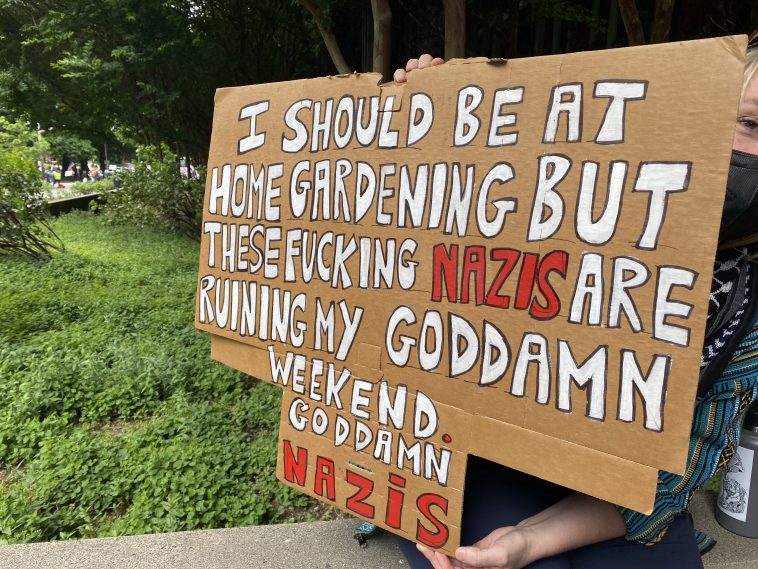 I SHOULD BE AT
HOME GARDENING BUT
THESE FUCKING NAZIS ARE
RUINING MY GODDAMN
WEEKEND.
GODDAMN
NAZiS